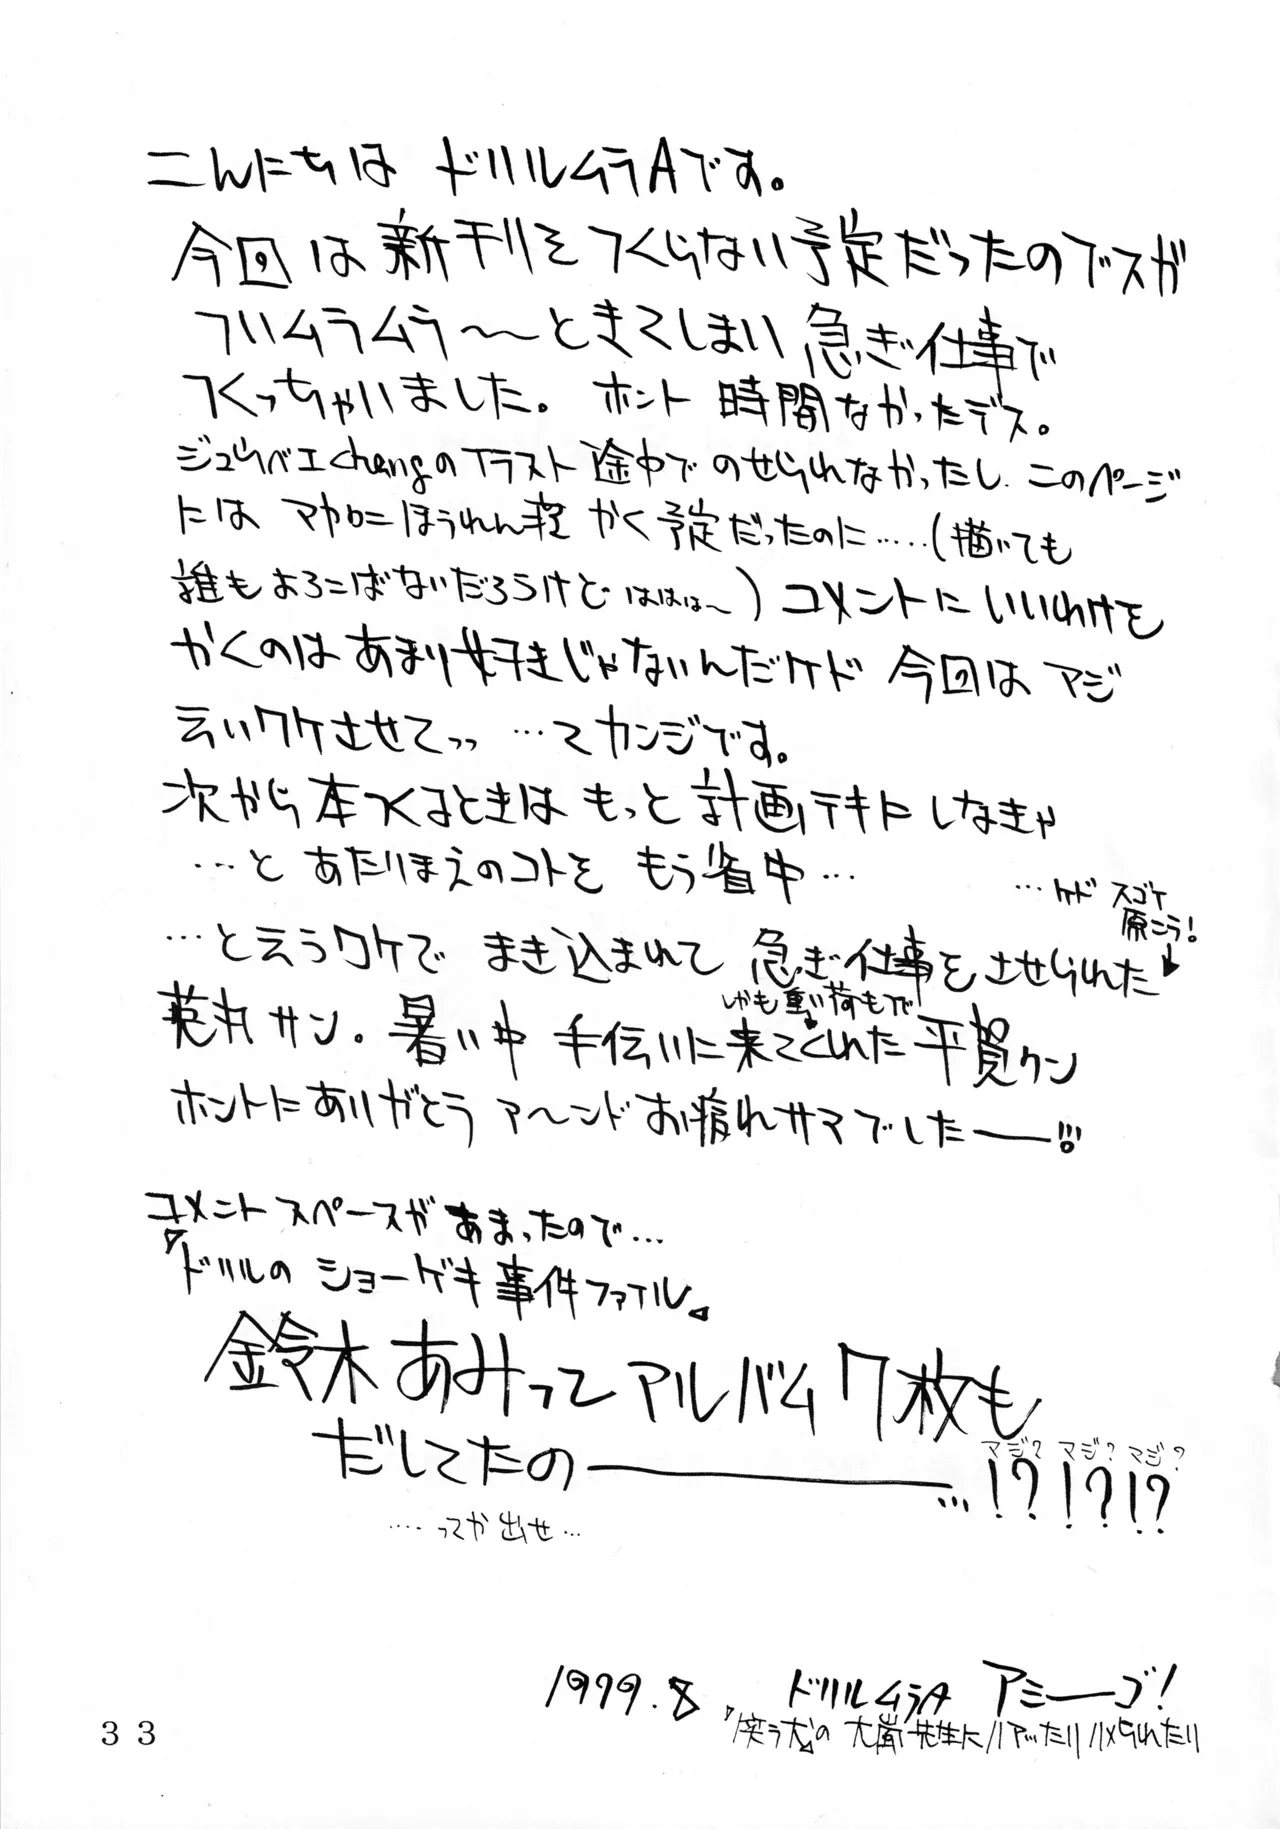 こんにちは ドリルムラAです。
今回は新刊をつくらない予定だったのでスガ
ついムラムラ〜〜ときてしまい 急ぎ仕事で
つくっちゃいました。 ホント 時間なかったデス。
ジュウベエchangのイラスト 途中で のせられなかったし このページ
には マカロニほうれん荘 かく予定だったのに……(描いても
誰もよろこばないだろうけど はははは〜) コメントにいいわけを
かくのはあまり好きじゃないんだケド 今回は マジ
云いワケさせてッッ …てカンジです。
次から 本つくるときは もっと 計画テキに しなきゃ
…と あたりまえのコトを もう省中…
…ケド スゴイ
原こう!
…と云うワケで まき込まれて 急ぎ仕事をさせられた
英丸サン。 暑い中 手伝いに来てくれた 平賀クン
しかも重い荷もつで
ホントにありがとう ア〜ンド お疲れサマでしたー!!!
コメントスペースがあまったので…
『ドリルの ショーゲキ事件ファイル』
鈴木あみって アルバム7枚も
だしてたのー…!?!?!?
マジ? マジ? マジ?
……ってか 出せ…
1999.8 ドリルムラA アミーゴ!
『笑う犬』の 大嵐先生に ハマッたり ハメられたり
33